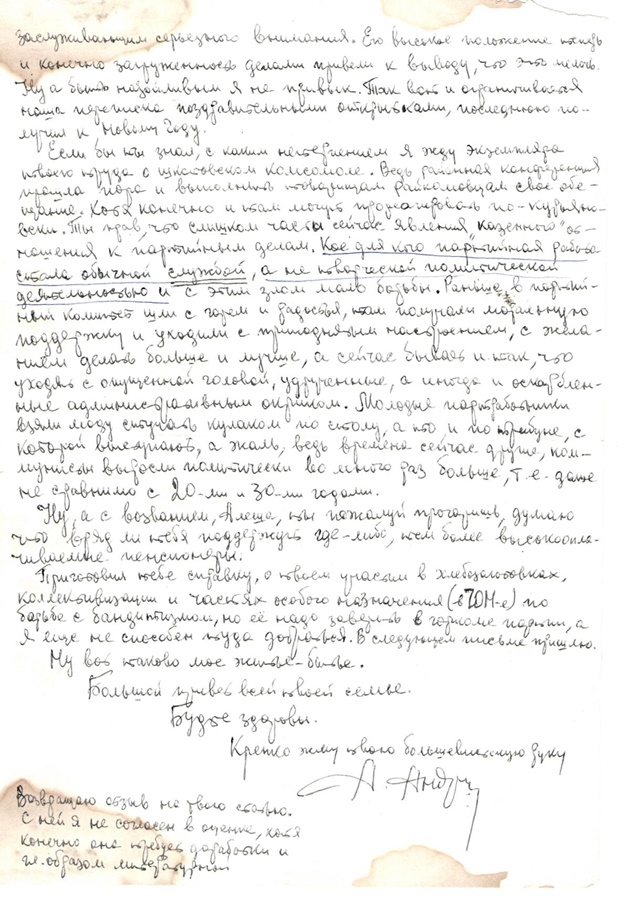 заслуживающим серьезного внимания. Его высокое положение
и конечно загруженность делами привели к выводу, что это мелочь.
Ну а быть назойливым я не привык. Так вот и ограничивается
наша переписка поздравительными открытками, последнюю по-
лучил к Новому Году.
Если бы ты знал, с каким нетерпением я жду экземпляра
твоего труда о шкотовском комсомоле. Ведь районная конференция
прошла пора и выполнить товарищам райкомовцам свое обе-
щание. Хотя конечно и там могут прореагировать по-
вски. Ты прав, что слишком часты сейчас явления "казенного" от-
ношения к партийным делам. Кое для кого партийная работа
стала обычной службой, а не творческой политической
деятельностью и с этим злом мало борьбы. Раньше в партий-
ный комитет шли с горем и радостью, там получали моральную
поддержку и уходили с приподнятым настроением, с жела-
нием делать больше и лучше, а сейчас бывает и так, что
уходят с опущенной головой, удрученные, а иногда и оскорблен-
ные административным окриком. Молодые партработники
взяли моду стучать кулаком по столу, а кто и по трибуне, с
которой выступают, а жаль, ведь времена сейчас другие, ком-
мунисты выросли политически во много раз больше, т.е. даже
не сравнимо с 20-ми и 30-ми годами.
Ну, а с воззванием, Алеша, ты пожалуй прогоришь, думаю
что вряд ли тебя поддержут где-либо, тем более высокоопла-
чиваемые пенсионеры.
Приготовил тебе справку, о твоем участии в хлебозаготовках,
коллективизации и частях особого назначения (в ЧОН-е) по
борьбе с бандитизмом, но её надо заверить в горкоме партии, а
я еще не способен туда добраться. В следующем письме пришлю.
Ну вот таково мое житье-бытье.
Большой привет всей твоей семье.
Будьте здоровы.
Крепко жму твою большевистскую руку
А.
Возвращаю отзыв на твою статью.
С ней я не согласен в оценке, хотя
конечно она требует доработки и
гл. образом литературной